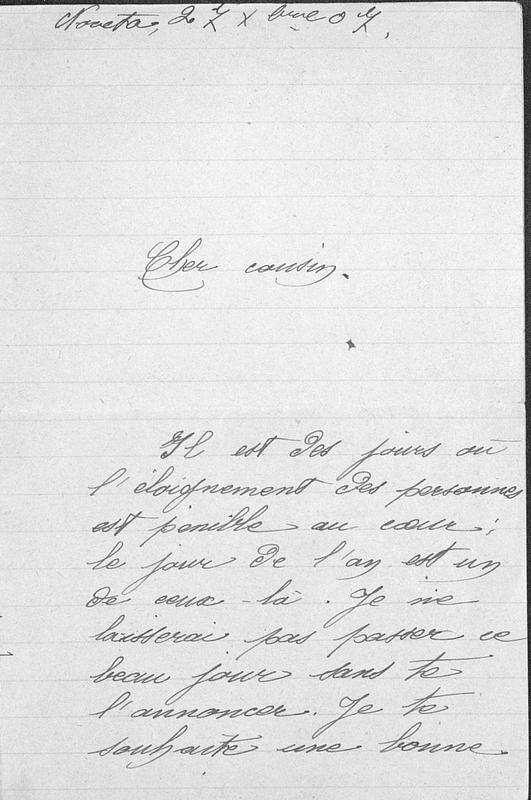 Noceta, 27 Xbre 07,
Cher cousin.
Il est des jours où
l'éloignement des personnes
est pénible au cœur ;
le jour de l'an est un
de ceux-là. Je ne
laisserai pas passer ce
beau jour sans te
l'annoncer. Je te
souhaite une bonne